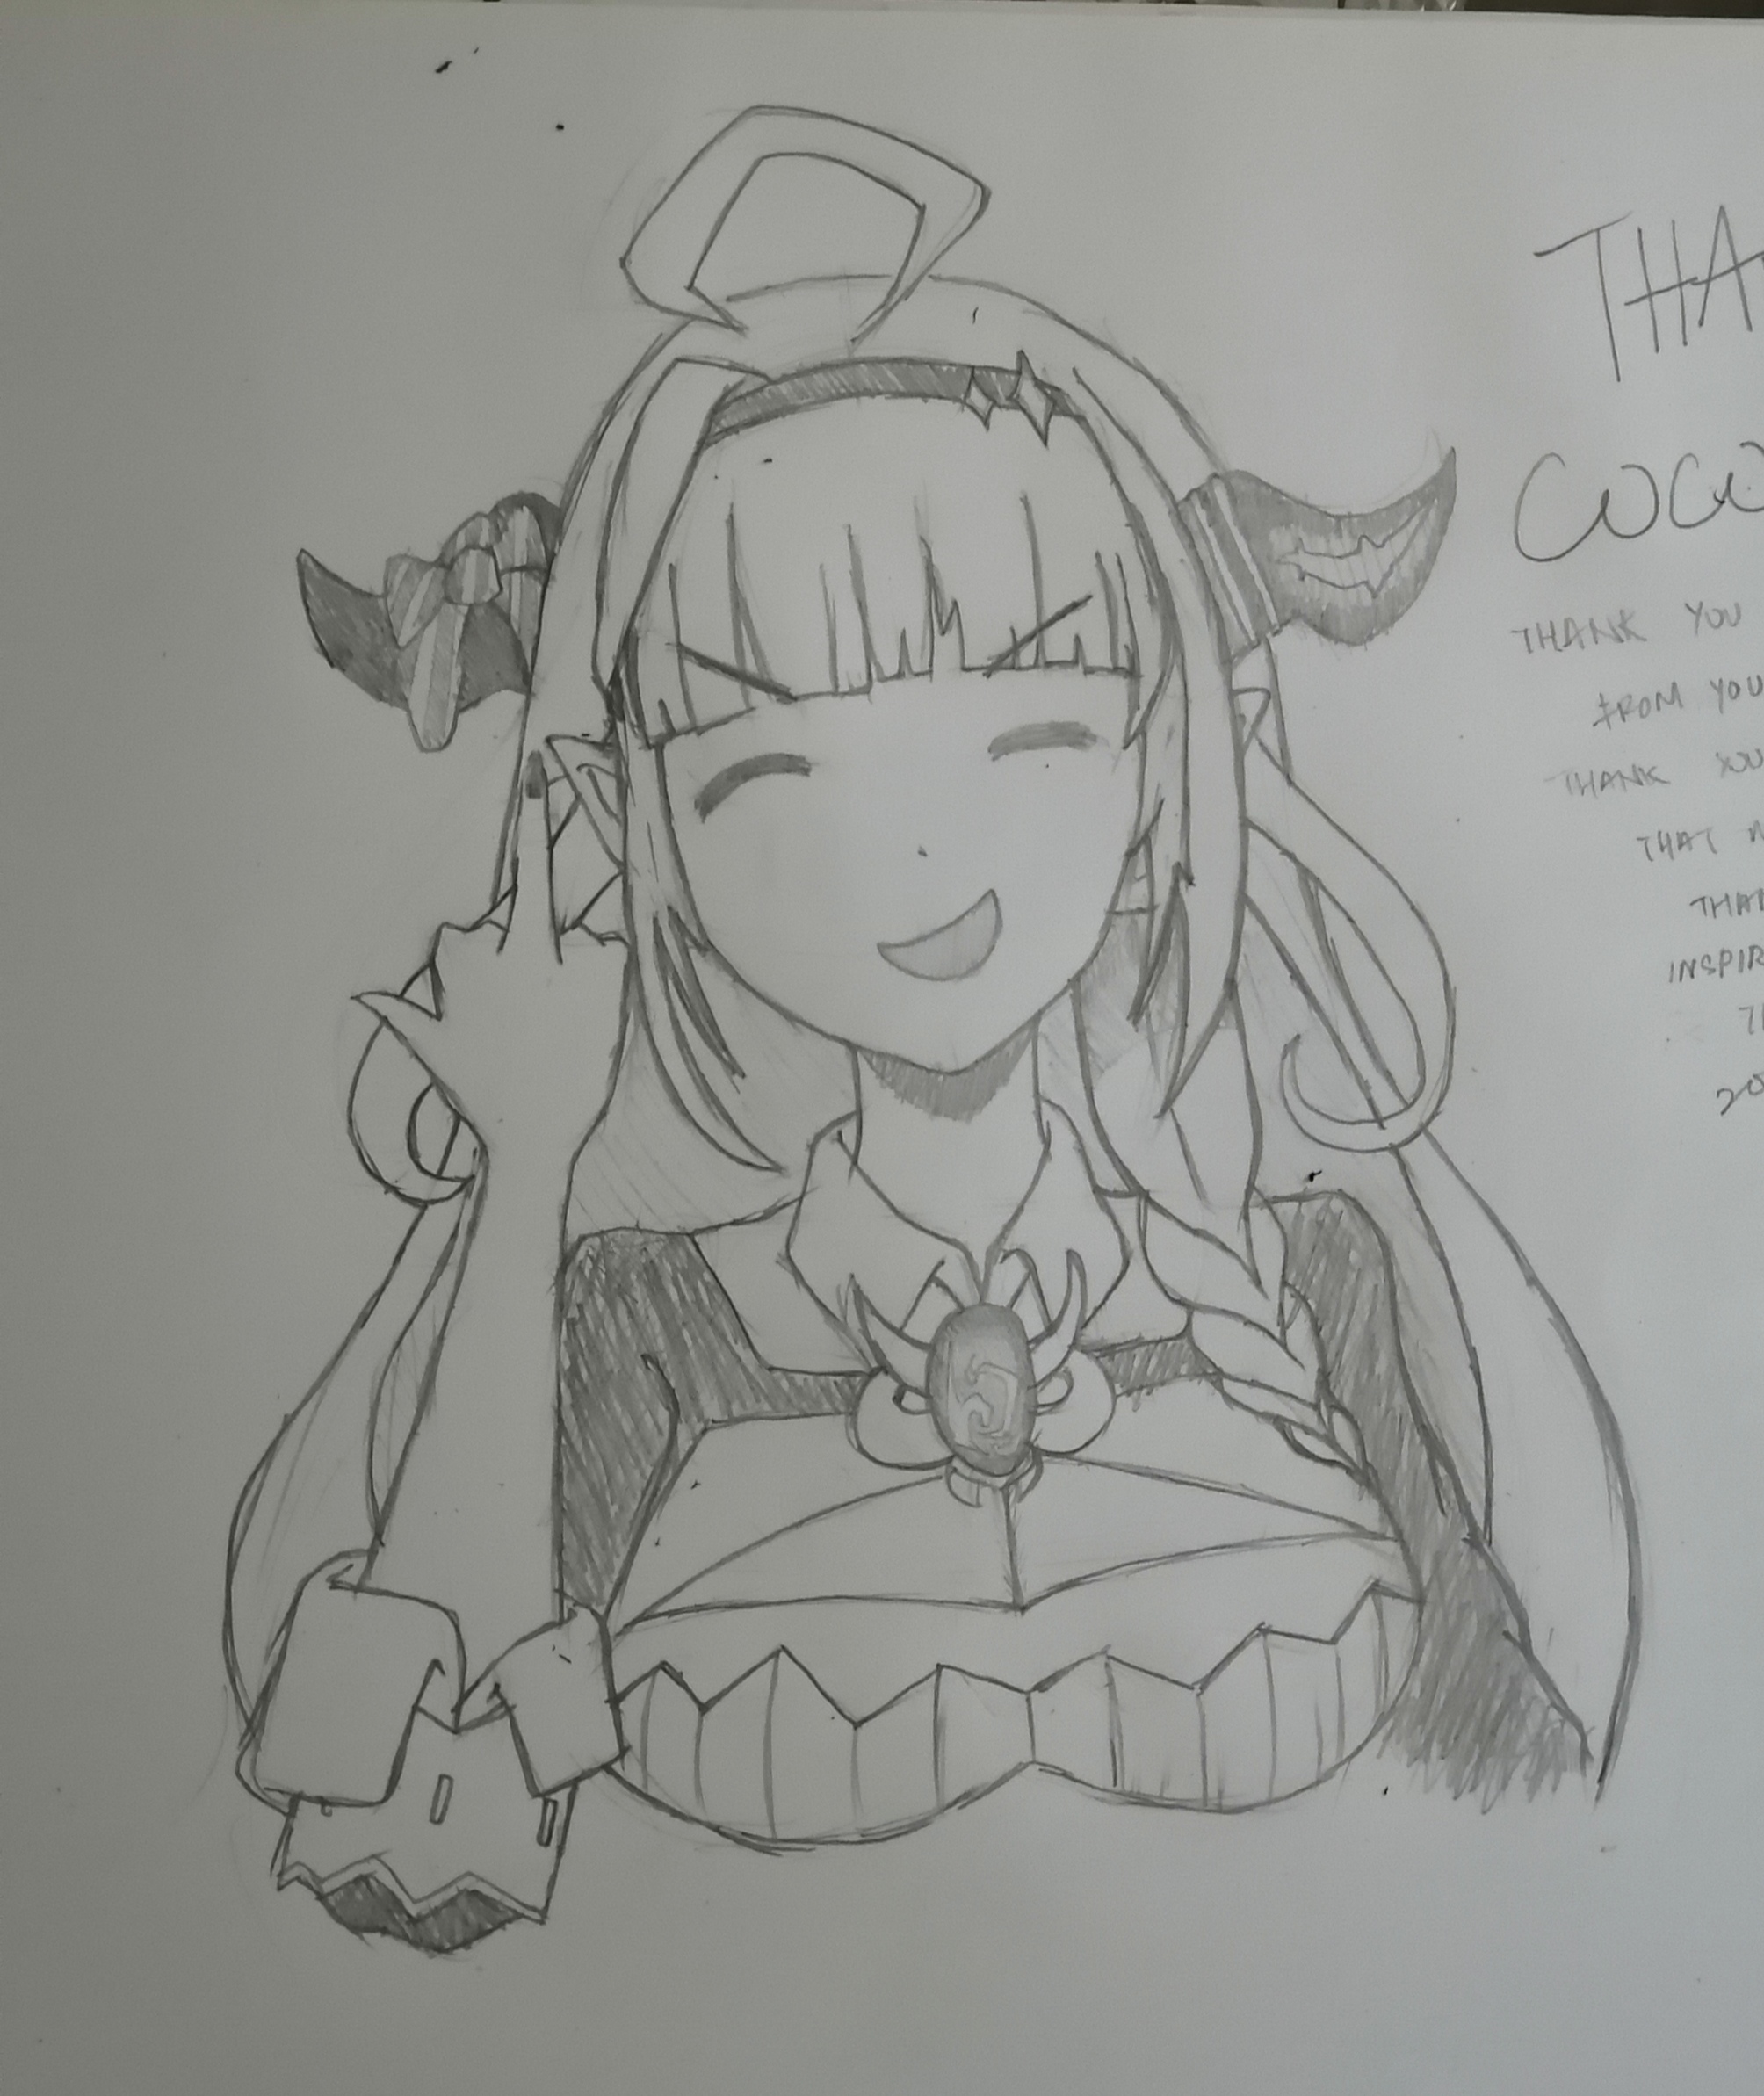 THA
COCO
THANK YOU
FROM YOU
THANK YOU
THAT
THAN
INSPIR
20